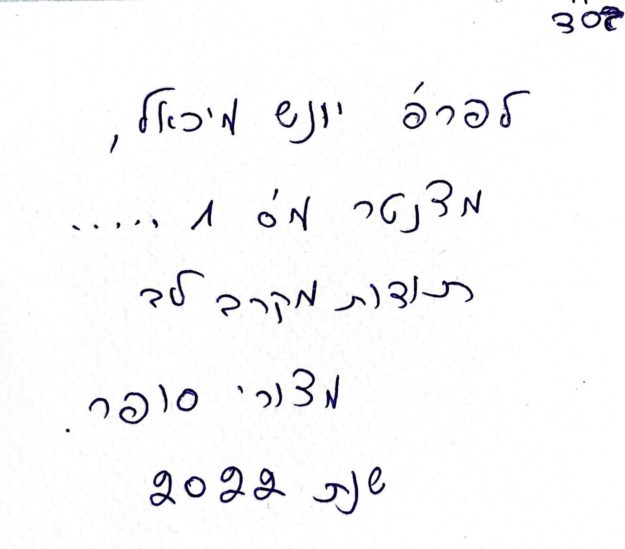 בס"ד
לפרופ' יונש מיכאל,
מצנטר מס' 1 .....
תודות מקרב לב
מצורי סופר.
שנת 2022